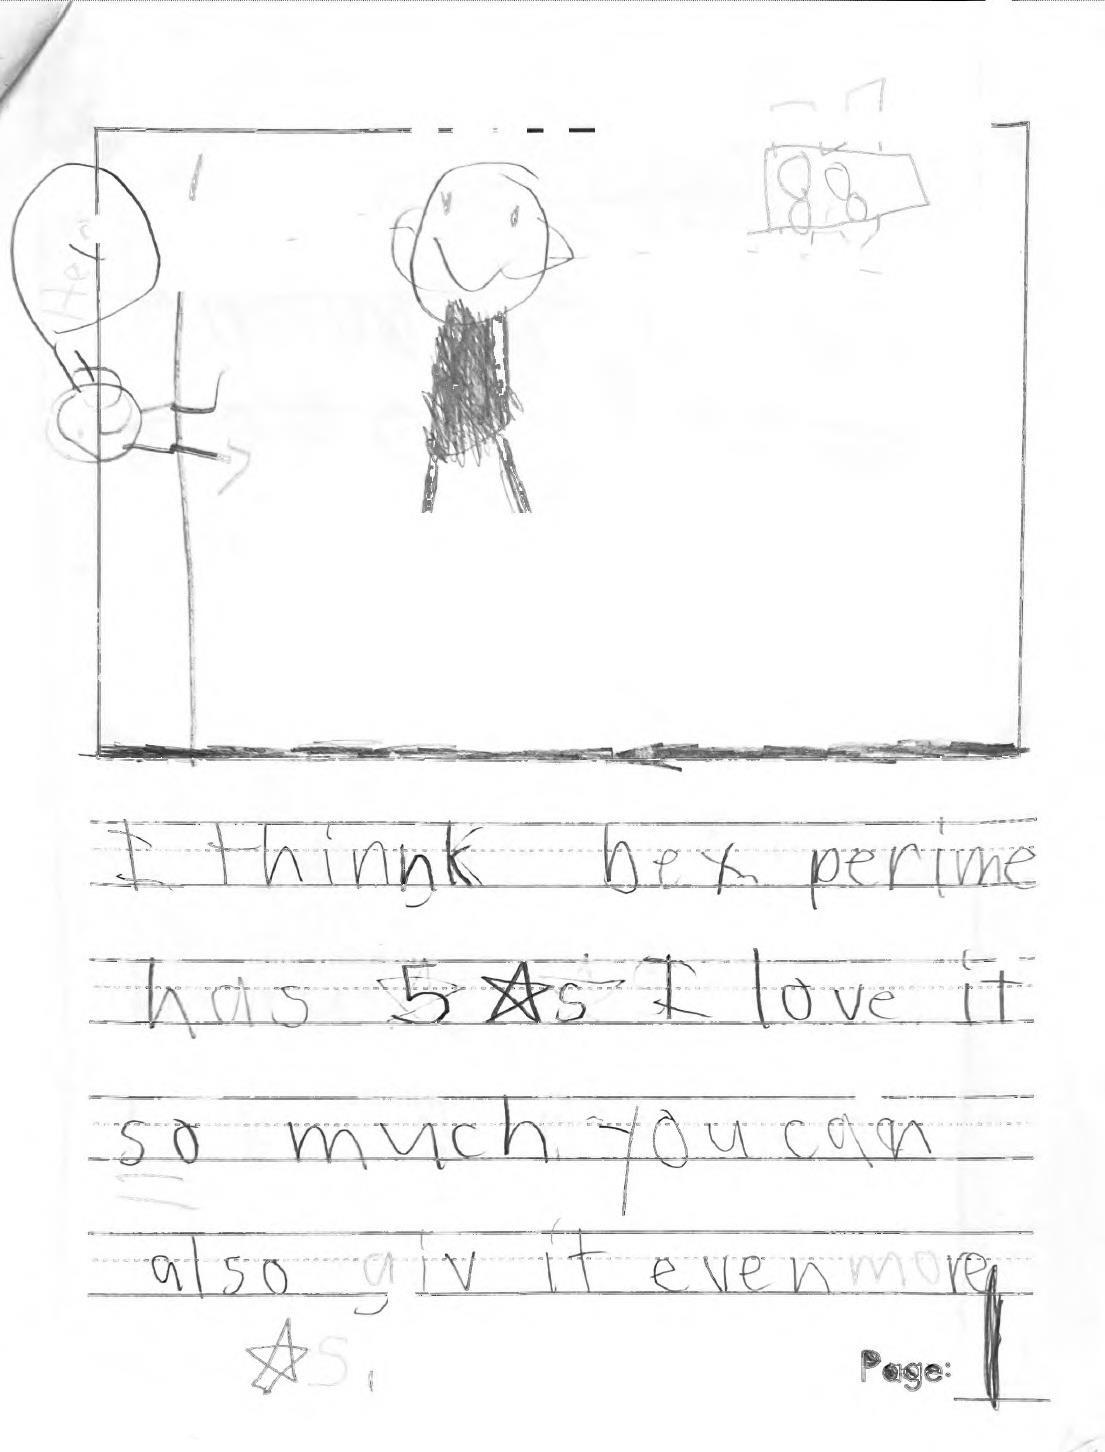 I thinnk hexperime
has 5 ☆s I love it
so much you can
also giv it even more
☆s.
Page: 1